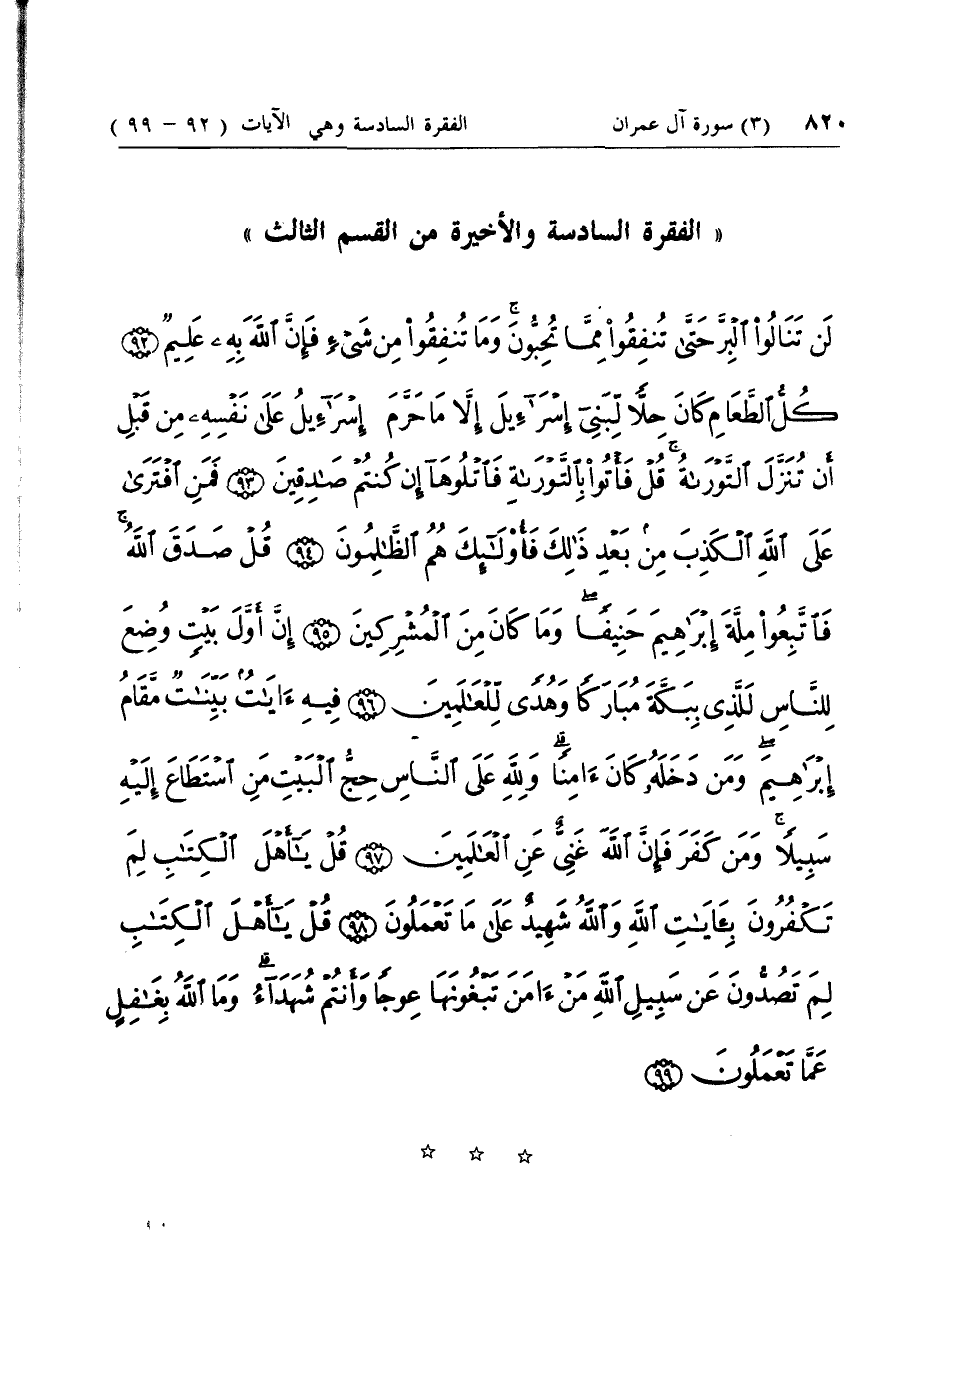 ٨٢٠ (٣) سورة آل عمران الفقرة السادسة وهي الآيات ( ٩٢ – ٩٩ )
« الفقرة السادسة والأخيرة من القسم الثالث »
لَن تَنَالُوا۟ ٱلْبِرَّ حَتَّىٰ تُنفِقُوا۟ مِمَّا تُحِبُّونَ ۚ وَمَا تُنفِقُوا۟ مِن شَىْءٍ فَإِنَّ ٱللَّهَ بِهِۦ عَلِيمٌ ﴿٩٢﴾
كُلُّ ٱلطَّعَامِ كَانَ حِلًّا لِّبَنِىٓ إِسْرَٰٓءِيلَ إِلَّا مَا حَرَّمَ إِسْرَٰٓءِيلُ عَلَىٰ نَفْسِهِۦ مِن قَبْلِ
أَن تُنَزَّلَ ٱلتَّوْرَىٰةُ ۗ قُلْ فَأْتُوا۟ بِٱلتَّوْرَىٰةِ فَٱتْلُوهَآ إِن كُنتُمْ صَٰدِقِينَ ﴿٩٣﴾ فَمَنِ ٱفْتَرَىٰ
عَلَى ٱللَّهِ ٱلْكَذِبَ مِنۢ بَعْدِ ذَٰلِكَ فَأُو۟لَٰٓئِكَ هُمُ ٱلظَّٰلِمُونَ ﴿٩٤﴾ قُلْ صَدَقَ ٱللَّهُ ۚ
فَٱتَّبِعُوا۟ مِلَّةَ إِبْرَٰهِيمَ حَنِيفًا ۖ وَمَا كَانَ مِنَ ٱلْمُشْرِكِينَ ﴿٩٥﴾ إِنَّ أَوَّلَ بَيْتٍ وُضِعَ
لِلنَّاسِ لَلَّذِى بِبَكَّةَ مُبَارَكًا وَهُدًى لِّلْعَٰلَمِينَ ﴿٩٦﴾ فِيهِ ءَايَٰتٌۢ بَيِّنَٰتٌ مَّقَامُ
إِبْرَٰهِيمَ ۖ وَمَن دَخَلَهُۥ كَانَ ءَامِنًا ۗ وَلِلَّهِ عَلَى ٱلنَّاسِ حِجُّ ٱلْبَيْتِ مَنِ ٱسْتَطَاعَ إِلَيْهِ
سَبِيلًا ۚ وَمَن كَفَرَ فَإِنَّ ٱللَّهَ غَنِىٌّ عَنِ ٱلْعَٰلَمِينَ ﴿٩٧﴾ قُلْ يَٰٓأَهْلَ ٱلْكِتَٰبِ لِمَ
تَكْفُرُونَ بِـَٔايَٰتِ ٱللَّهِ وَٱللَّهُ شَهِيدٌ عَلَىٰ مَا تَعْمَلُونَ ﴿٩٨﴾ قُلْ يَٰٓأَهْلَ ٱلْكِتَٰبِ
لِمَ تَصُدُّونَ عَن سَبِيلِ ٱللَّهِ مَنْ ءَامَنَ تَبْغُونَهَا عِوَجًا وَأَنتُمْ شُهَدَآءُ ۗ وَمَا ٱللَّهُ بِغَٰفِلٍ
عَمَّا تَعْمَلُونَ ﴿٩٩﴾
☆ ☆ ☆